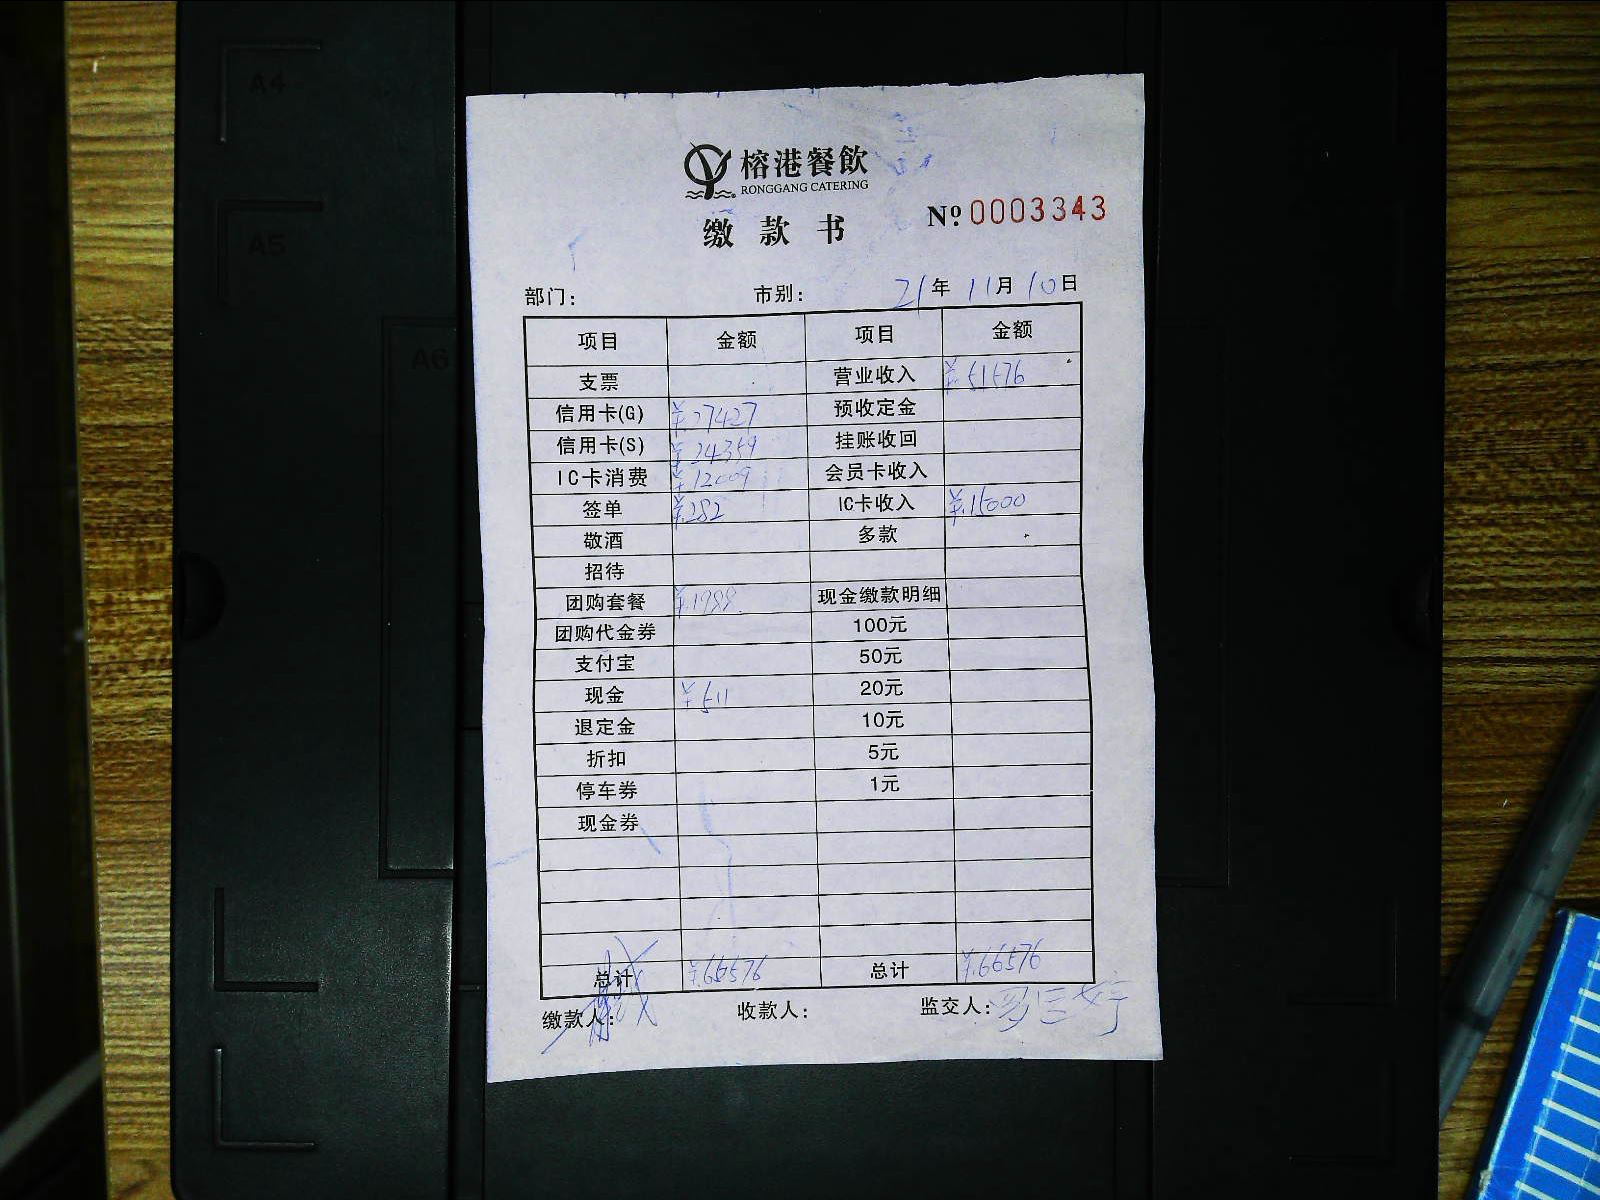 A4
A5
A6
榕港餐飲
RONGGANG CATERING
缴款书
№ 0003343
部门： 市别： 21年11月10日
项目 金额 项目 金额
支票 营业收入 ¥51576
信用卡(G) ¥27427 预收定金
信用卡(S) ¥24359 挂账收回
IC卡消费 ¥12009 会员卡收入
签单 ¥282 IC卡收入 ¥15000
敬酒 多款
招待
团购套餐 ¥1988 现金缴款明细
团购代金券 100元
支付宝 50元
现金 ¥511 20元
退定金 10元
折扣 5元
停车券 1元
现金券
总计 ¥66576 总计 ¥66576
缴款人： 收款人： 监交人：